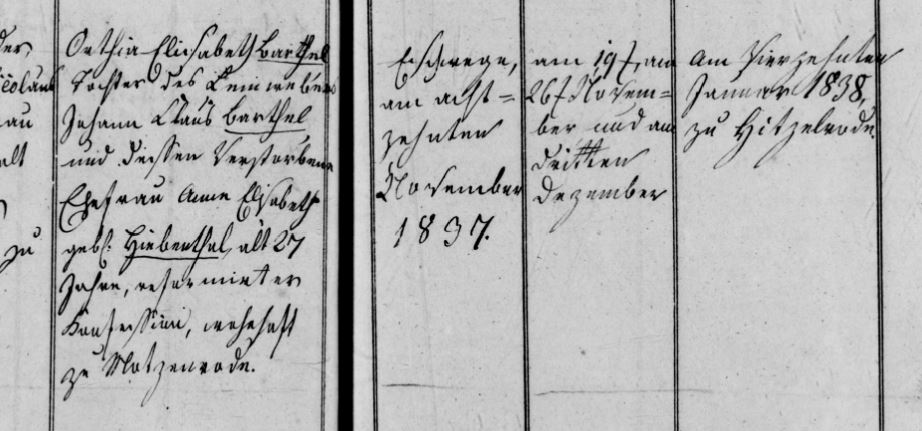 der,
Nicolaus
au
alt
zu
Orthia Elisabeth Barthel
Tochter des Leinwebers
Johann Claus Barthel
und dessen verstorbene
Ehefrau Anne Elisabeth
geb. Hiebenthal, alt 27
Jahre, reformierter
Konfession, wohnhaft
zu Motzenrode.
Eschwege,
am acht=
zehnten
November
1837.
am 19t, am
26t Novem=
ber und am
dritten
Dezember
Am vierzehnten
Januar 1838,
zu Hitzelrode.